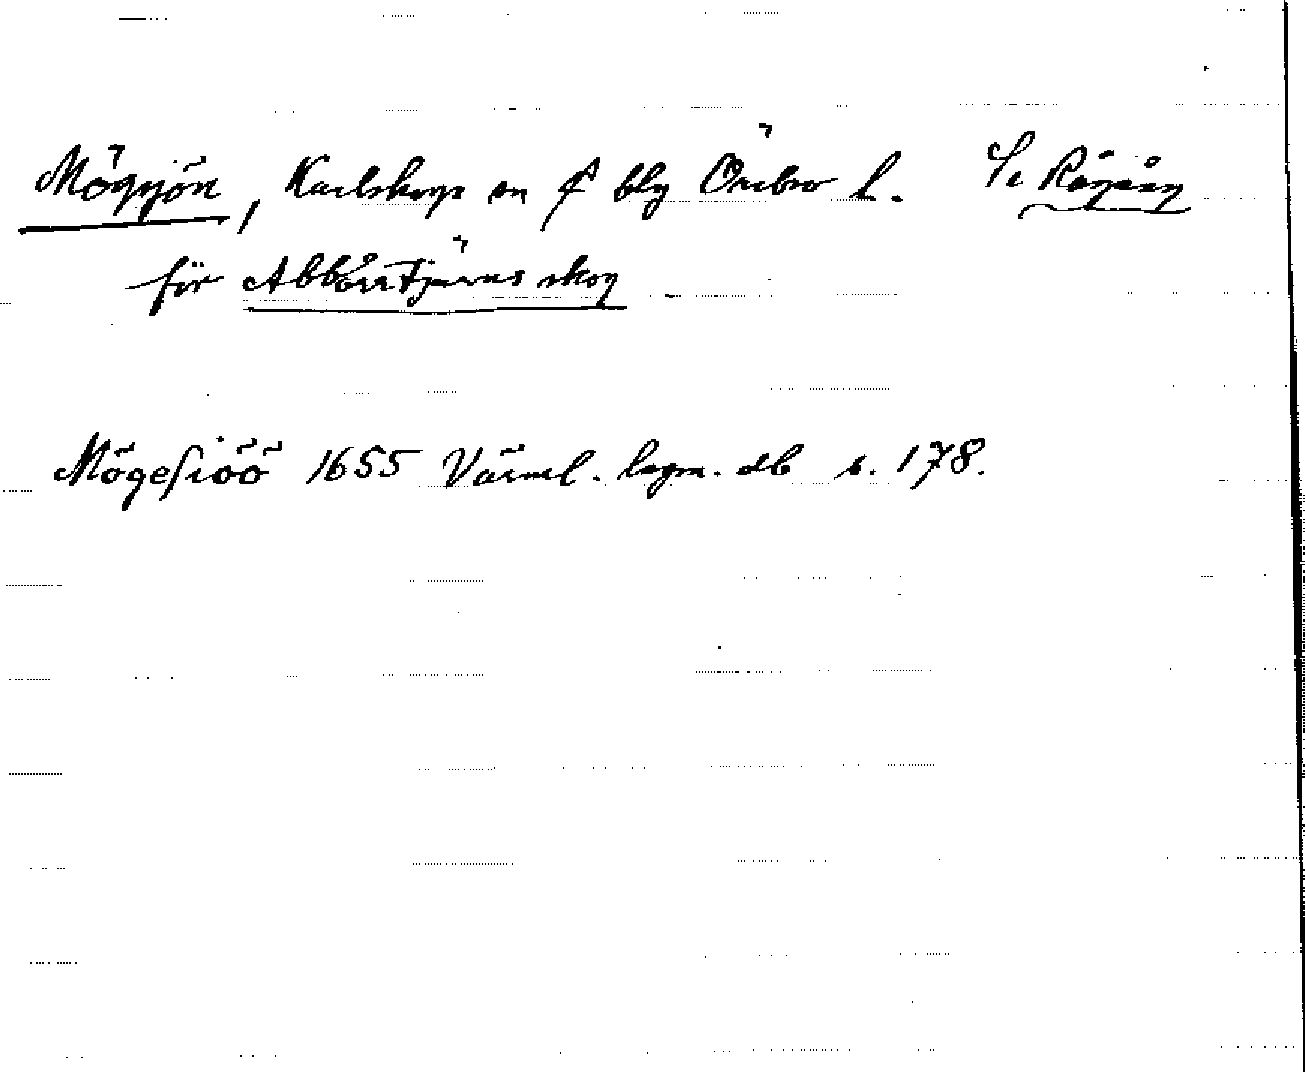 Mögsjön, Karlskoga sn f blg Örebro l. Se Rågång
för Abborrtjärns skog
Mögesiöö 1655 Värml. lagm. db s. 178.